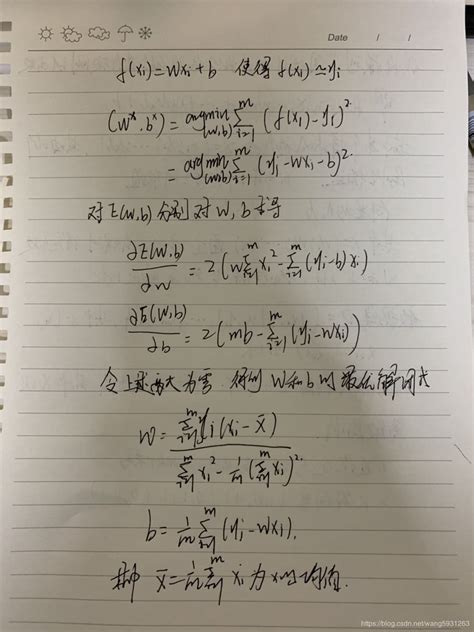 Date / /
f(xi)=wxi+b 使得 f(xi)≃yi
(w*,b*)=argmin(w,b) ∑_{i=1}^{m} (f(xi)-yi)²
=argmin(w,b) ∑_{i=1}^{m} (yi-wxi-b)²
对E(w,b)分别对w,b求导
∂E(w,b)/∂w = 2(w∑_{i=1}^{m} xi² - ∑_{i=1}^{m} (yi-b)xi)
∂E(w,b)/∂b = 2(mb-∑_{i=1}^{m} (yi-wxi))
令上述两式为零 得到 w和b的最优解闭式
w = ∑_{i=1}^{m} yi(xi-x̄) / (∑_{i=1}^{m} xi² - 1/m (∑_{i=1}^{m} xi)²)
b = 1/m ∑_{i=1}^{m} (yi-wxi),
其中 x̄=1/m ∑_{i=1}^{m} xi 为x的均值.
https://blog.csdn.net/wang5931263